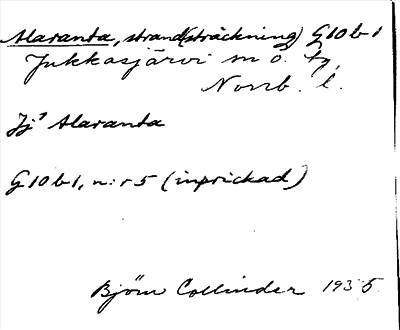 Alaranta, strand(sträckning) G10b1
Jukkasjärvi m o. tg,
Norrb. l.
Jj³ Alaranta
G10b1, n:r 5 (inprickad)
Björn Collinder 1935.